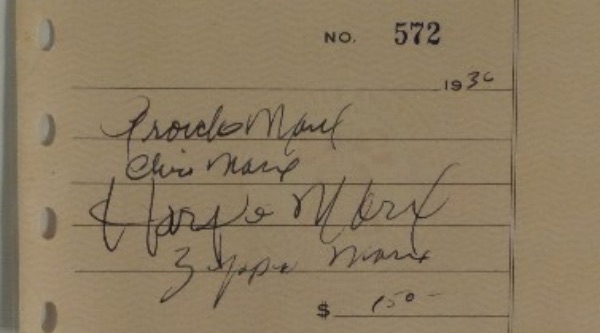 NO. 572
1936
Groucho Marx
Chico Marx
Harpo Marx
Zeppo Marx
$ 150-